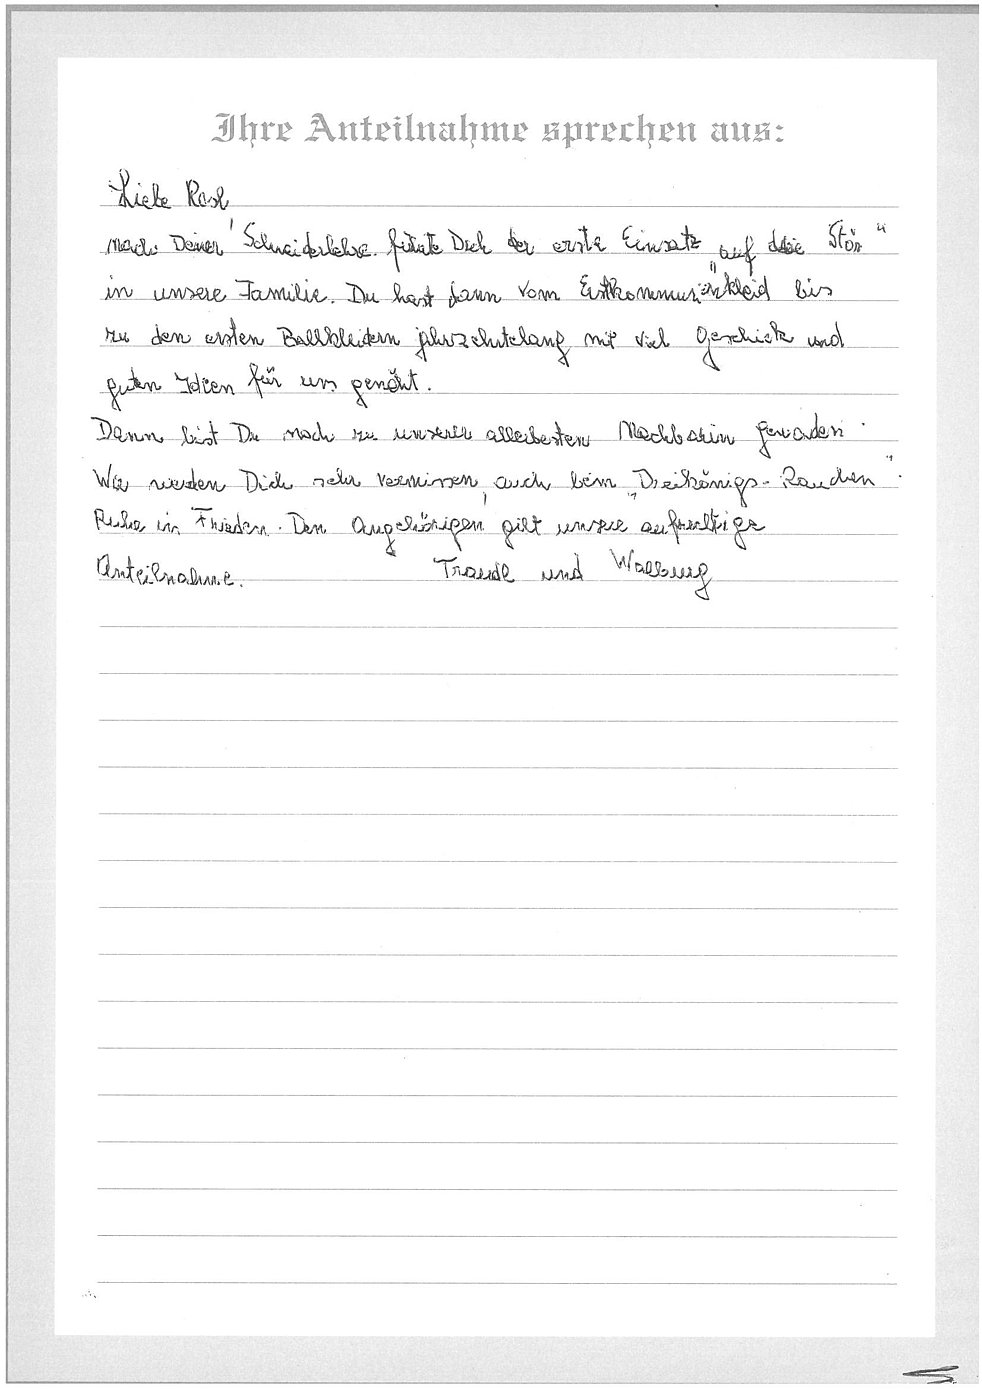 Ihre Anteilnahme sprechen aus:
Liebe Rosl,
nach Deiner Schneiderlehre führte Dich der erste Einsatz „auf die Stör“
in unsere Familie. Du hast dann vom Erstkommunionkleid bis
zu den ersten Ballkleidern jahrzehntelang mit viel Geschick und
guten Ideen für uns genäht.
Dann bist Du noch zu unserer allerbesten Nachbarin geworden.
Wir werden Dich sehr vermissen, auch beim „Dreikönigs-Rauchen“.
Ruhe in Frieden. Den Angehörigen gilt unsere aufrichtige
Anteilnahme. Traudl und Walburg